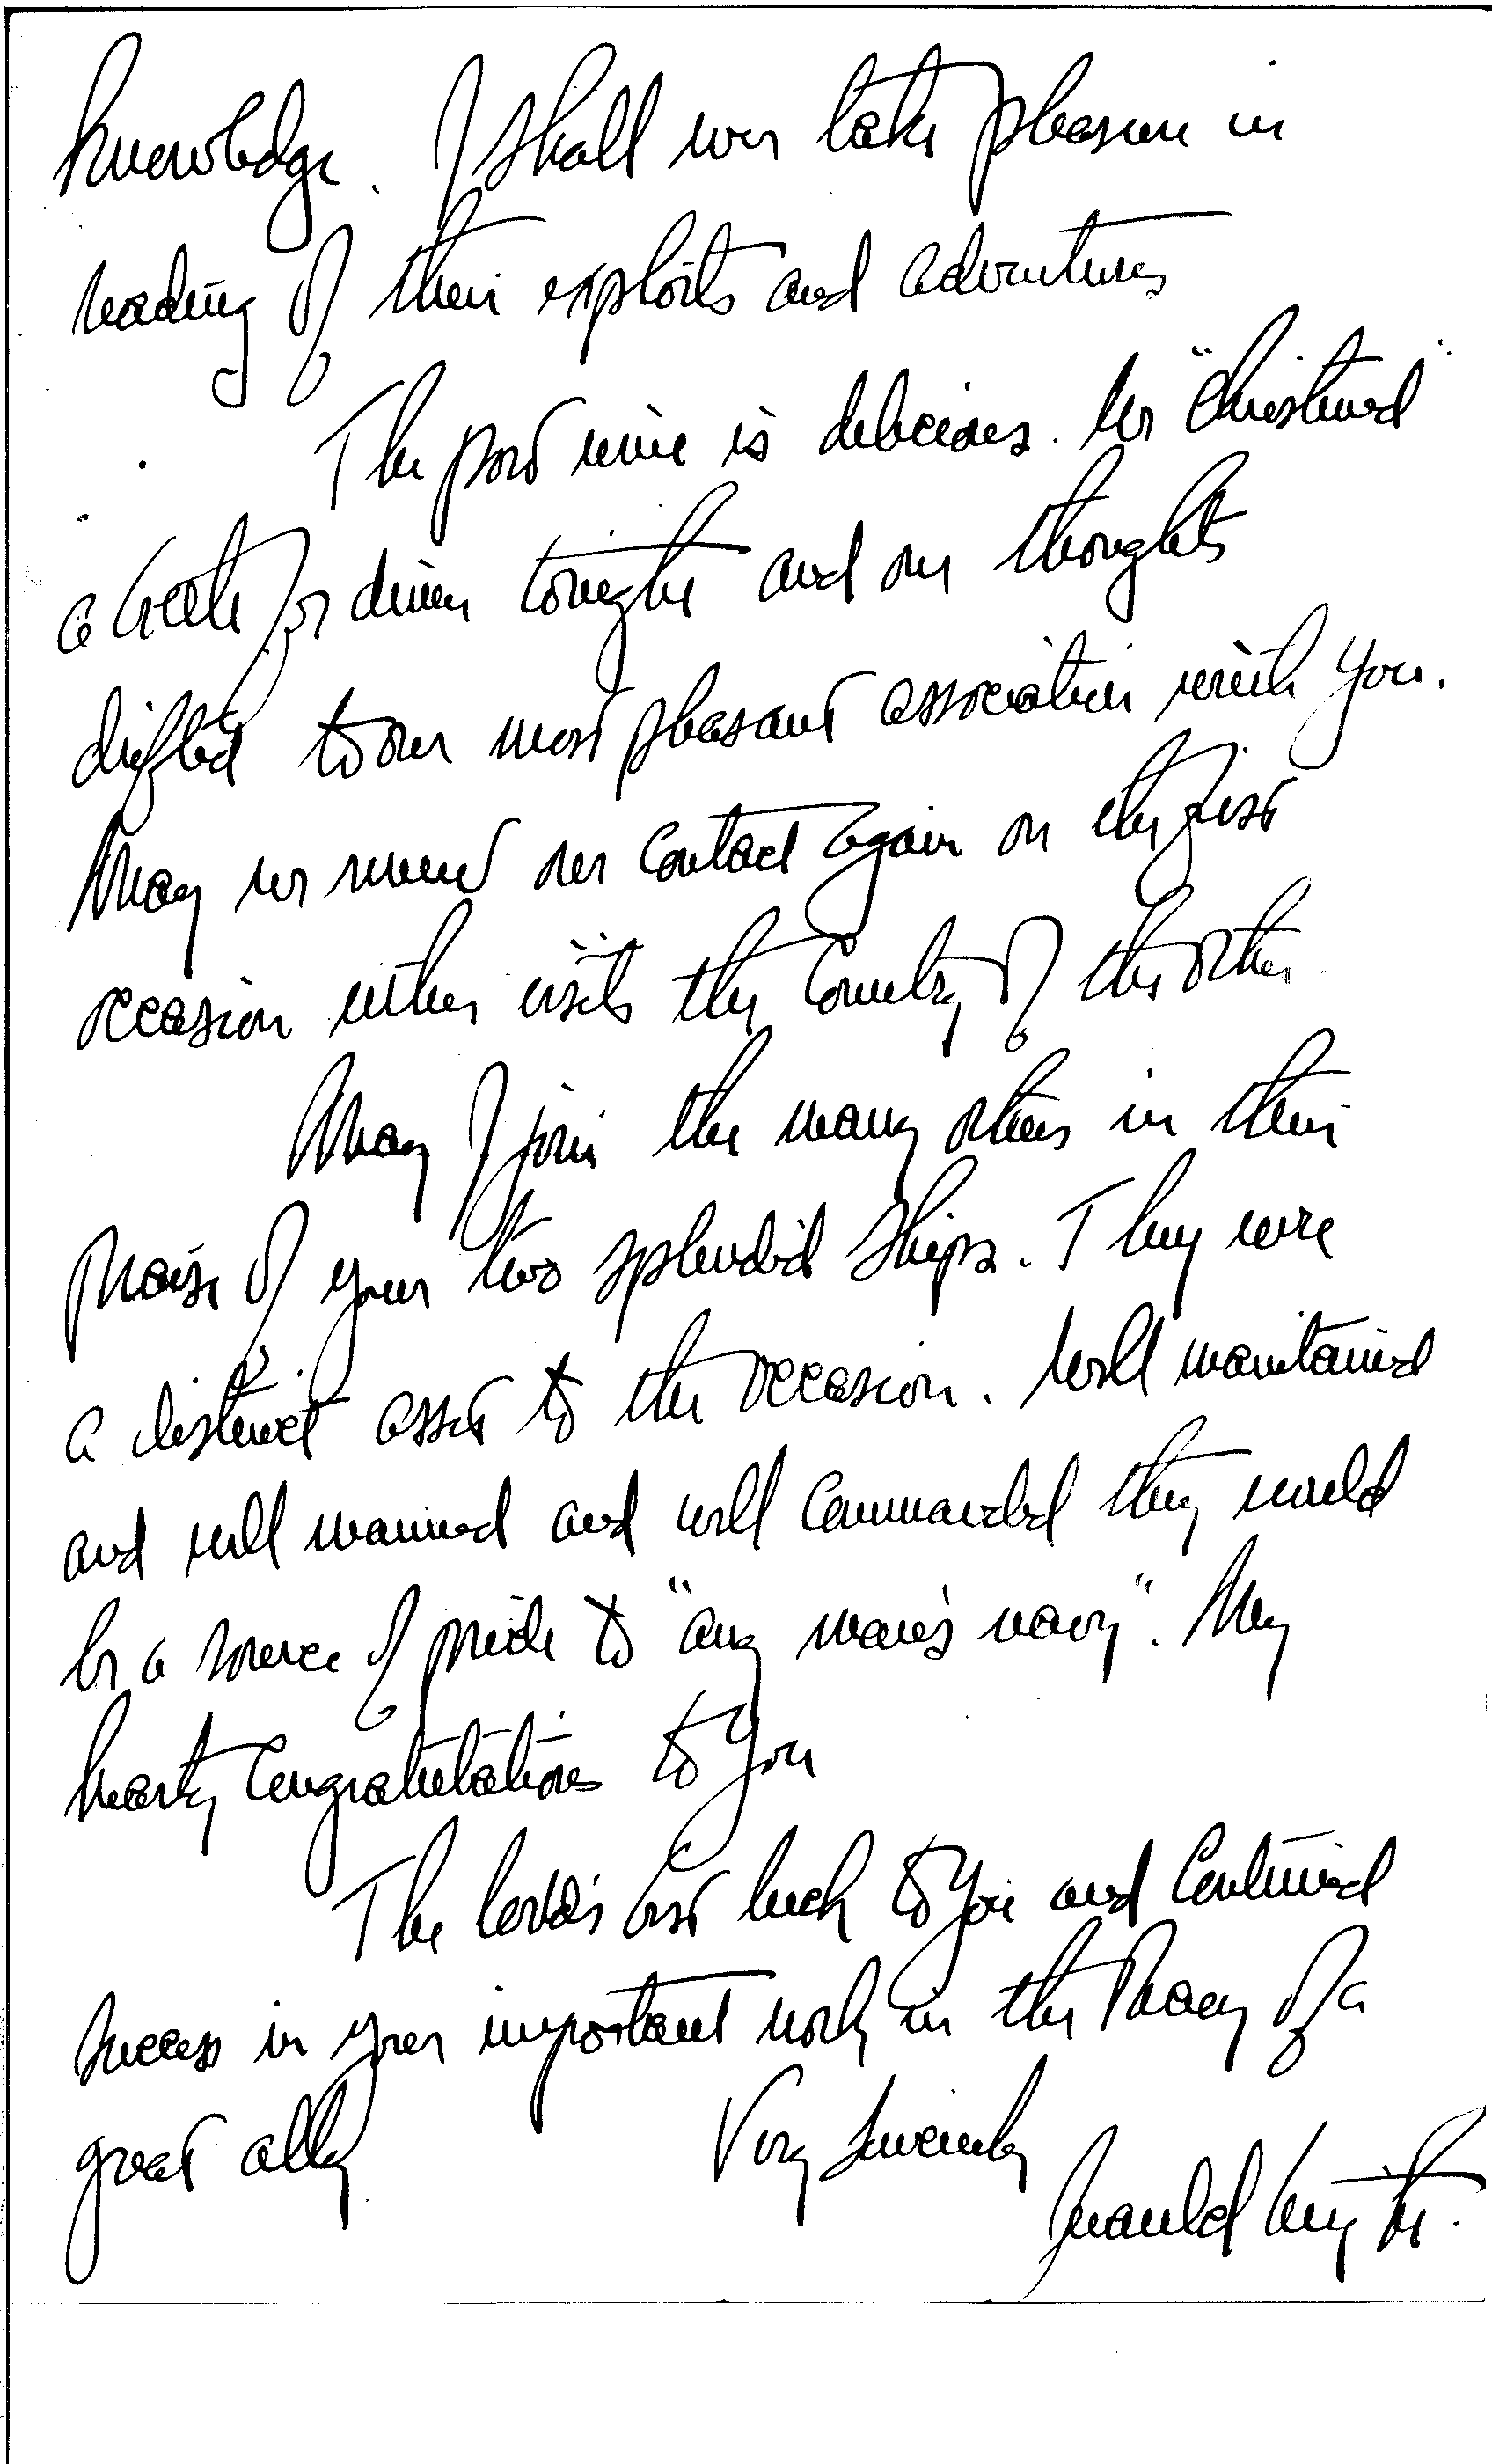 knowledge. I shall ever take pleasure in
reading of their exploits and adventures
The port wine is delicious. We "christened"
a bottle for dinner tonight and our thoughts
drifted to our most pleasant association with you.
May we renew our contact again on the first
occasion either visits the country of the other.
May I join the many others in their
praise of your two splendid ships. They were
a distinct asset to the occasion. Well maintained
and well manned and well commanded they would
be a source of pride to "any man's navy". My
hearty congratulations to you
The world's best luck to you and continued
success in your important work in the Navy of a
great ally
Very Sincerely